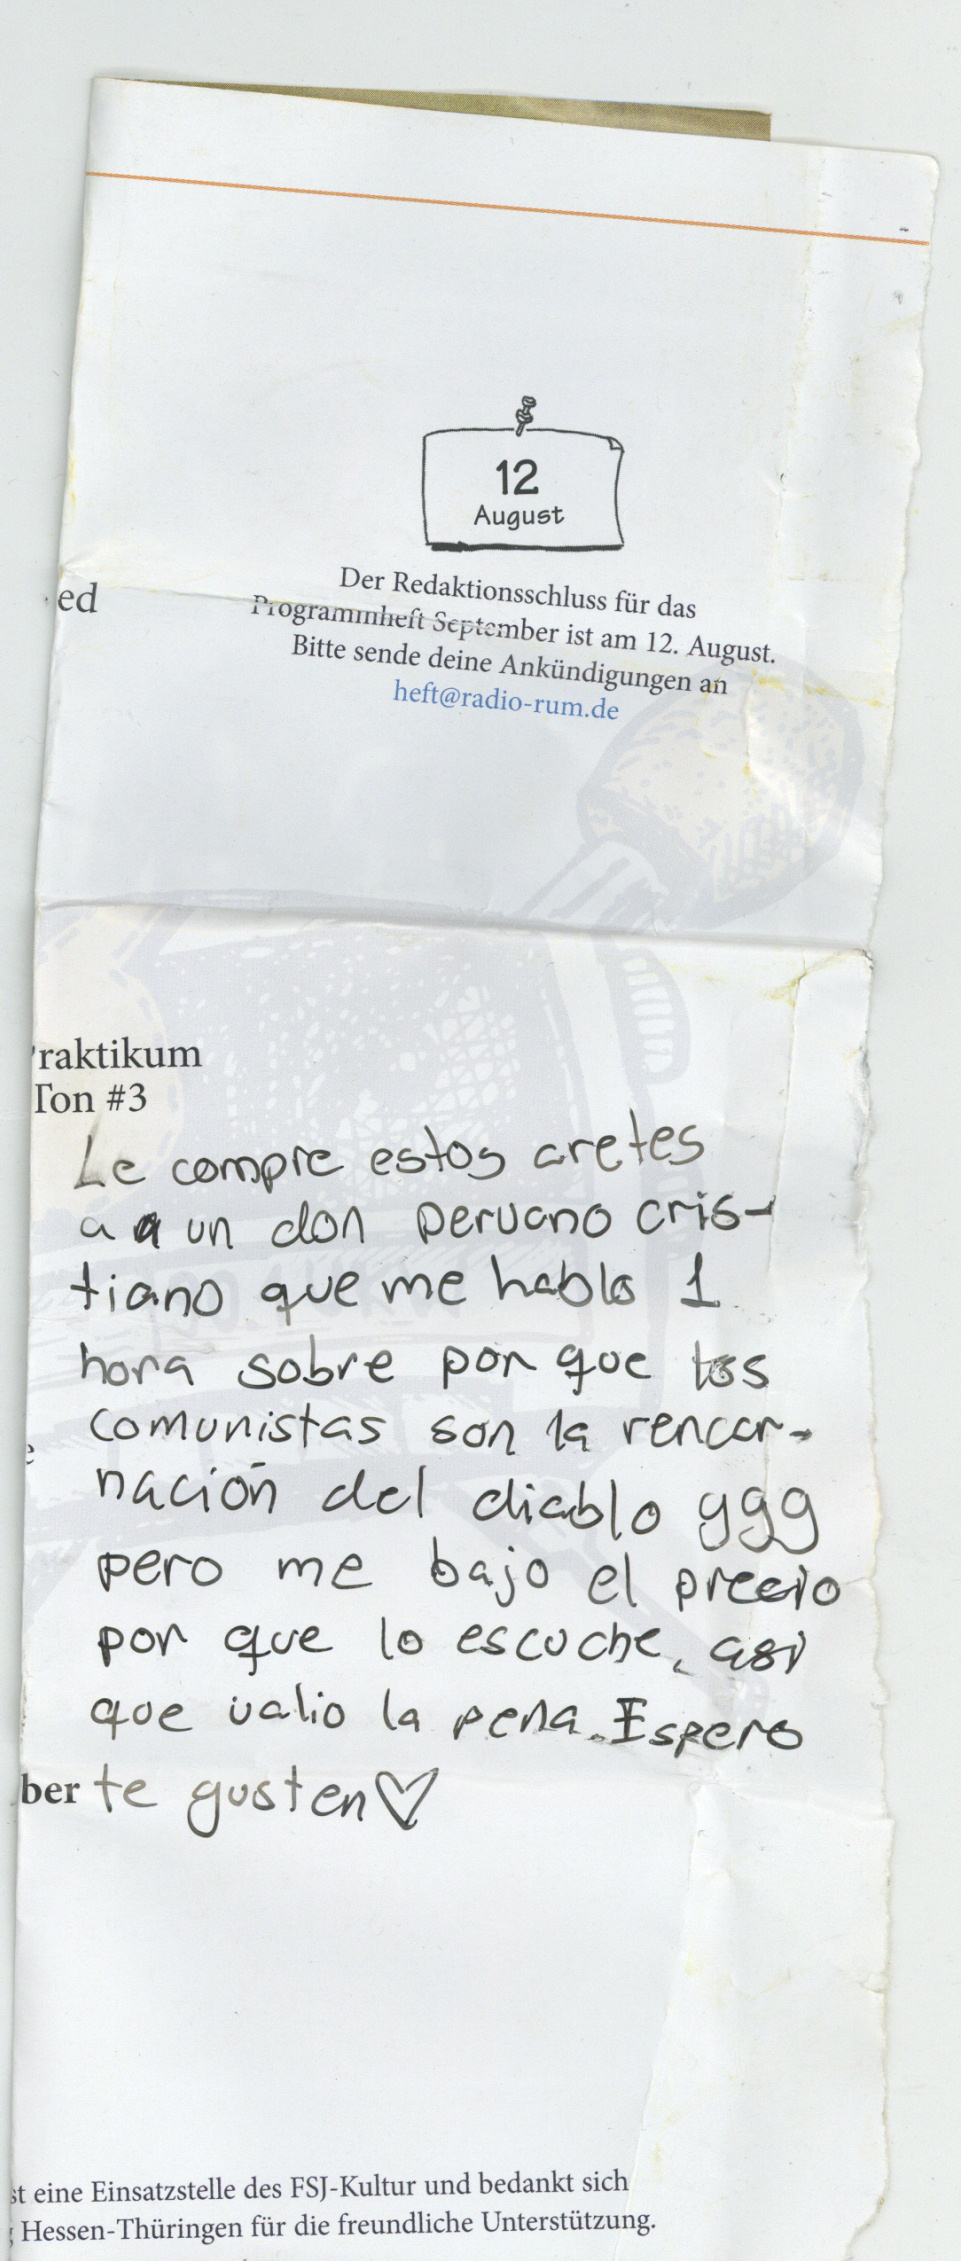 12
August
Der Redaktionsschluss für das
Programmheft September ist am 12. August.
Bitte sende deine Ankündigungen an
heft@radio-rum.de
ed
raktikum
Ton #3
Le compre estos aretes
a un don peruano cris-
tiano que me hablo 1
hora sobre por que los
comunistas son la rencar-
nación del diablo ggg
pero me bajo el precio
por que lo escuche, asi
que valio la pena. Espero
ber te gusten♡
st eine Einsatzstelle des FSJ-Kultur und bedankt sich
g Hessen-Thüringen für die freundliche Unterstützung.